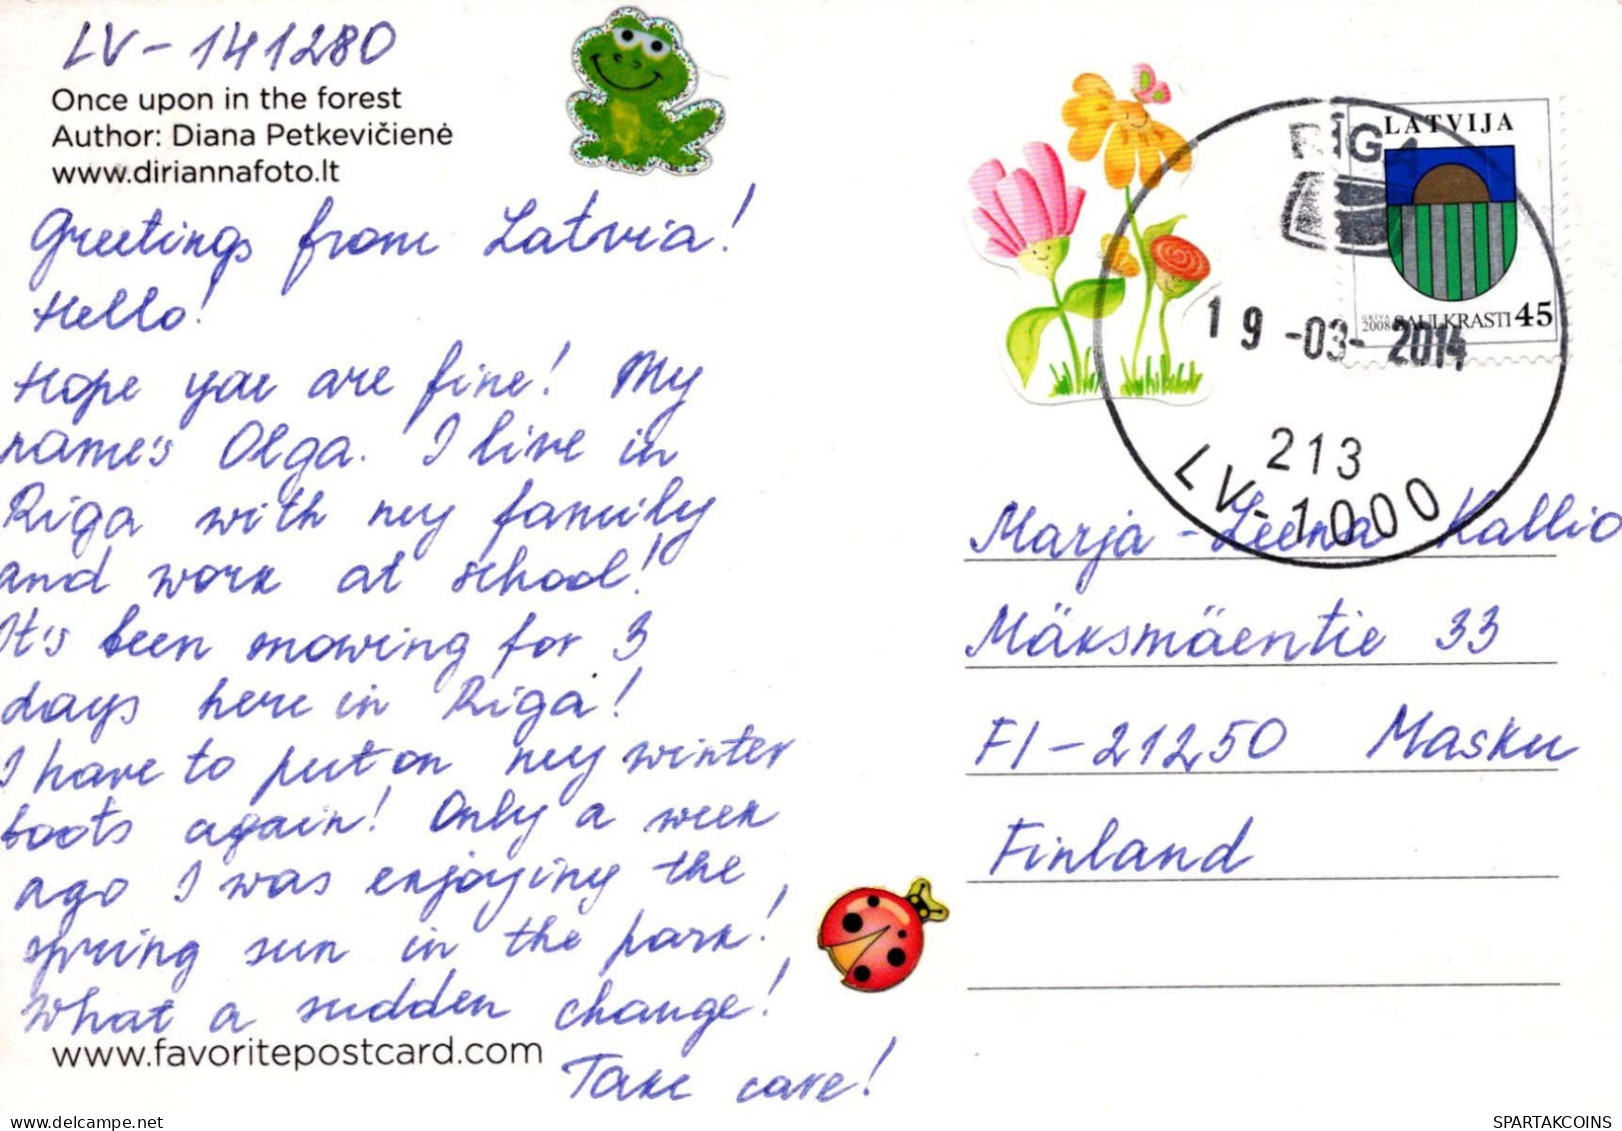 LV-141280
Once upon in the forest
Author: Diana Petkevičienė
www.diriannafoto.lt
Greetings from Latvia!
Hello!
Hope you are fine! My
name's Olga. I live in
Riga with my family
and work at school!
It's been snowing for 3
days here in Riga!
I have to put on my winter
boots again! Only a week
ago I was enjoying the
spring sun in the park!
What a sudden change!
www.favoritepostcard.com
Take care!
LATVIJA
RĪGA
GRIVA
2008 SAULKRASTI 45
19-03-2014
213
LV-1000
Marja-Leena Kallio
Mäksmäentie 33
FI-21250 Masku
Finland
delcampe.net
SPARTAKCOINS